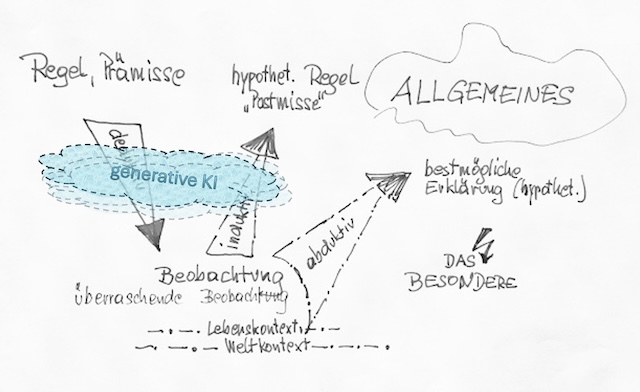 Regel, Prämisse
hypothet. Regel
„Postmisse“
ALLGEMEINES
generative KI
induktiv
abduktiv
bestmögliche
Erklärung (hypothet.)
DAS
BESONDERE
Beobachtung
überraschende Beobachtung
Lebenskontext
Weltkontext